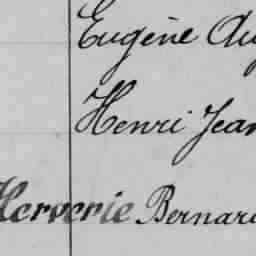 Eugène Aug
Henri Jean
Herverie Bernard